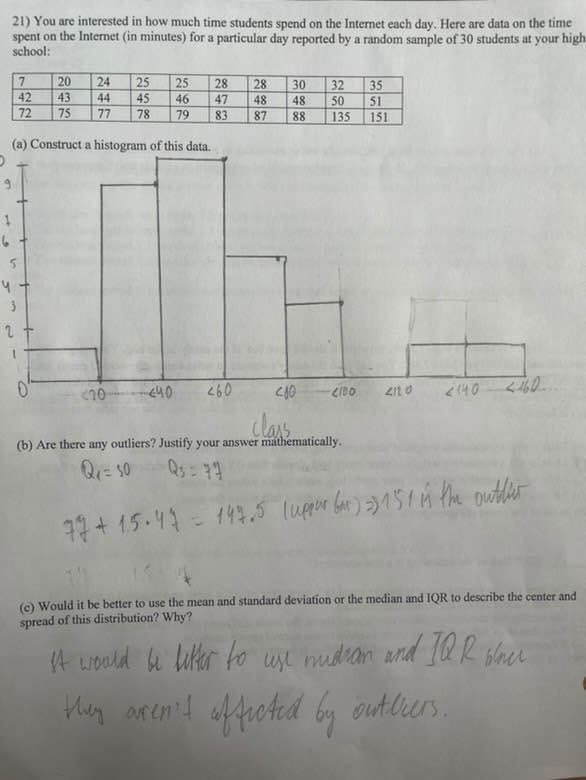 21) You are interested in how much time students spend on the Internet each day. Here are data on the time
spent on the Internet (in minutes) for a particular day reported by a random sample of 30 students at your high
school:
7 20 24 25 25 28 28 30 32 35
42 43 44 45 46 47 48 48 50 51
72 75 77 78 79 83 87 88 135 151
(a) Construct a histogram of this data.
9
6
5
4
3
2
1
0
<20 <40 <60 <80 <100 <120 <140 <160
class
(b) Are there any outliers? Justify your answer mathematically.
Q₁ = 30 Q₃ = 77
77 + 1.5·47 = 147.5 (upper bar) ⇒ 151 is the outlier
(c) Would it be better to use the mean and standard deviation or the median and IQR to describe the center and
spread of this distribution? Why?
It would be better to use median and IQR since
they aren't affected by outliers.